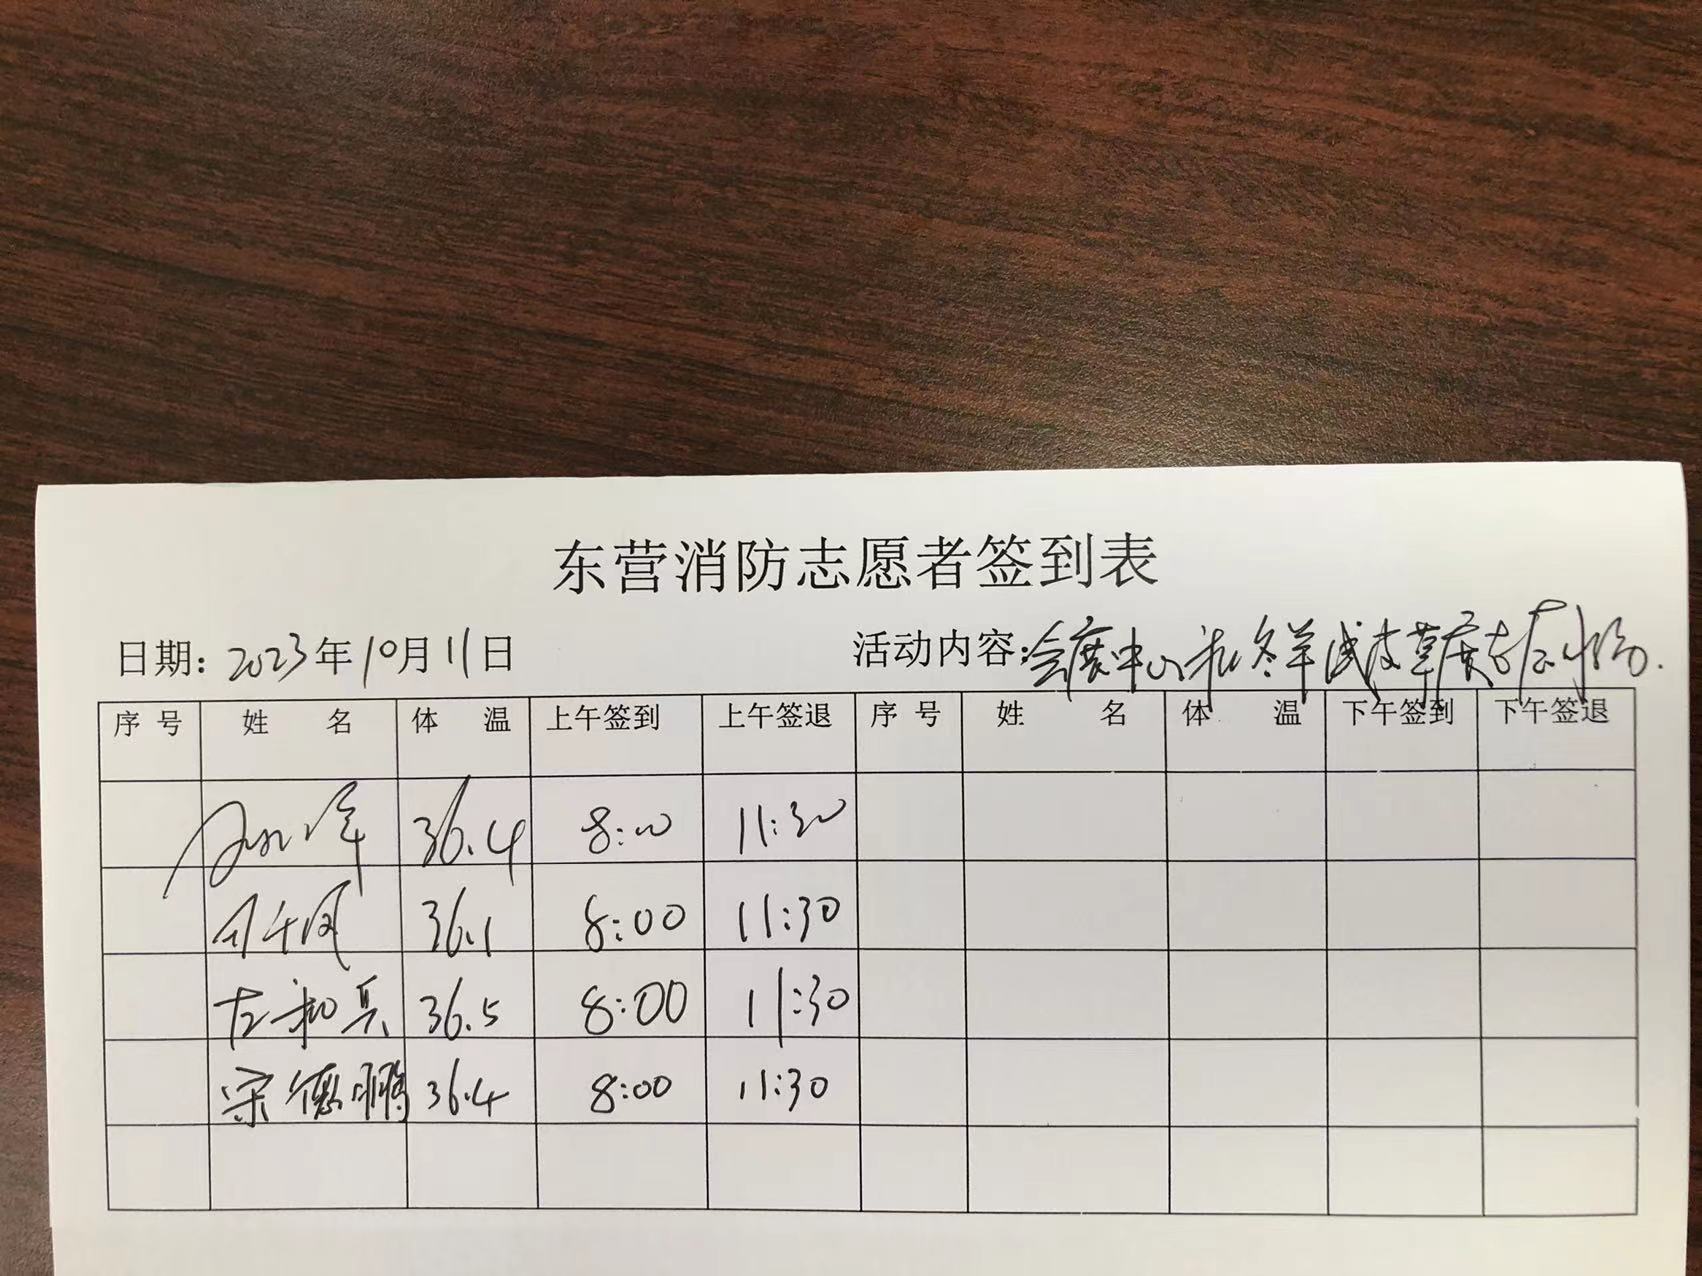 东营消防志愿者签到表
日期: 2023年10月11日 活动内容:会展中心
序号 姓 名 体 温 上午签到 上午签退 序号 姓 名 体 温 下午签到 下午签退
36.4 8:00 11:30
36.1 8:00 11:30
左和兵 36.5 8:00 11:30
宋德鹏 36.4 8:00 11:30